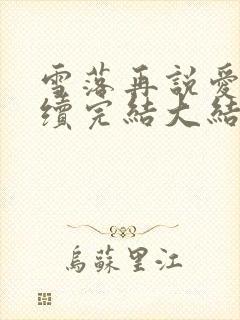 雪落再說愛
續完結大結
烏蘇里江